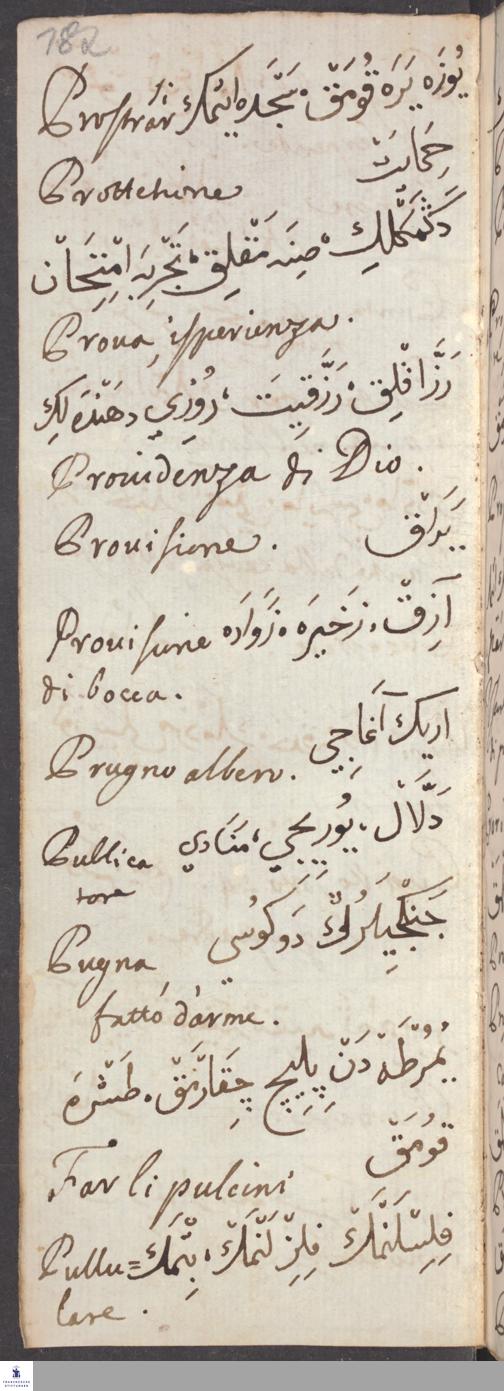 182
يُوزَه يَرَه قُومَقْ، سَجْدَه ايتْمَك
Prostrar
حِمَايَتْ
Prottetione
صِنَه مَقْلِقْ، تَجْرِبَه اِمْتِحَانْ
Proua, isperienza.
رَزَّاقْلِقْ، رَزَّاقِيَتْ، رُوزِي دِهَنْدَه لِك
Prouidenza di Dio.
Prouisione. يَرَاقْ
Prouisione آزِقْ، زَخِيرَه، زَوَادَه
di bocca.
اريك آغَاجِي
Prugno albero.
دَلَّالْ، مُنَادِي
Publica
tore
جَنْكْجِيلَرُكْ دَوكُوسِي
Pugna,
fatto d'arme.
يُمُرْطَه دَنْ پِلِيچ چِقَارْمَقْ، طَشْرَه
قُومَقْ
Far li pulcini
Pullu= فِلِسْلَنْمَكْ فِلِزْلَنْمَكْ، بِتْمَكْ
lare.